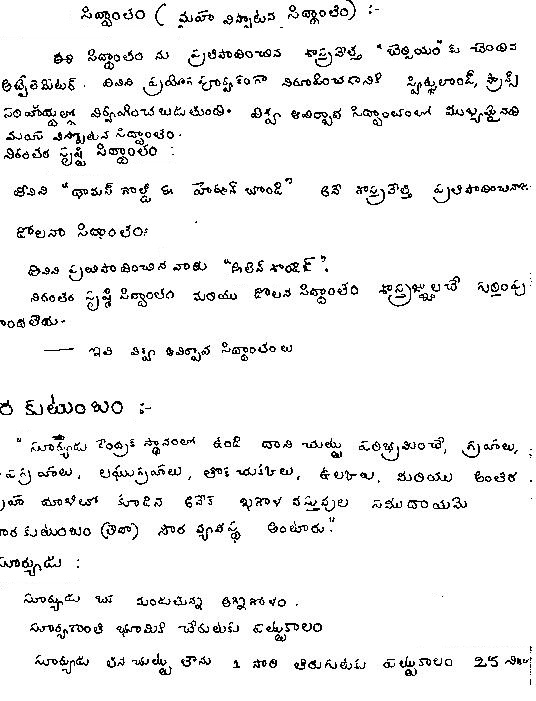 సిద్ధాంతం ( మహా విస్పోటన సిద్ధాంతం) :-
ఈ సిద్ధాంతం ను ప్రతిపాదించిన శాస్త్రవేత్త "బెల్జియం" కు చెందిన
అబ్బేలెమైటర్. దీనిని ప్రయోగ పూర్వకంగా నిరూపించడానికి స్విట్జర్లాండ్, ఫ్రాన్స్
సరిహద్దుల్లో నిర్వహించ బడుతుంది. విశ్వ ఆవిర్భావ సిద్ధాంతంలలో ముఖ్యమైనది
మహా విస్పోటన సిద్ధాంతం.
నిరంతర సృష్టి సిద్ధాంతం :
దీనిని "థామస్ గోల్డ్ ఈ హెర్మన్ బాండి" అనే శాస్త్రవేత్త ప్రతిపాదించినారు
డోలనా సిద్ధాంతం:
దీనిని ప్రతిపాదించిన వారు "అలెన్ శాండేజ్".
నిరంతర సృష్టి సిద్ధాంతం మరియు డోలన సిద్ధాంతం శాస్త్రజ్ఞులచే గుర్తింపు
పొందలేదు.
— ఇవి విశ్వ ఆవిర్భావ సిద్ధాంతలు
ర కుటుంబం :-
"సూర్యుడు కేంద్రక స్థానంలో ఉండి దాని చుట్టు పరిభ్రమించే, గ్రహాలు,
ఉపగ్రహాలు, లఘుగ్రహాలు, తోక చుక్కలు, ఉల్కలు, మరియు అంతర
గ్రహ మాళితో కూడిన అనేక ఖగోళ వస్తువుల సముదాయమే
సౌర కుటుంబం (లేదా) సౌర వ్యవస్థ అంటారు."
సూర్యుడు :
సూర్యుడు ఒక మండుతున్న అగ్నిగోళం.
సూర్యకాంతి భూమికి చేరుటకు పట్టుకాలం
సూర్యుడు తన చుట్టు తాను 1 సారి తిరుగుటకు పట్టుకాలం 25